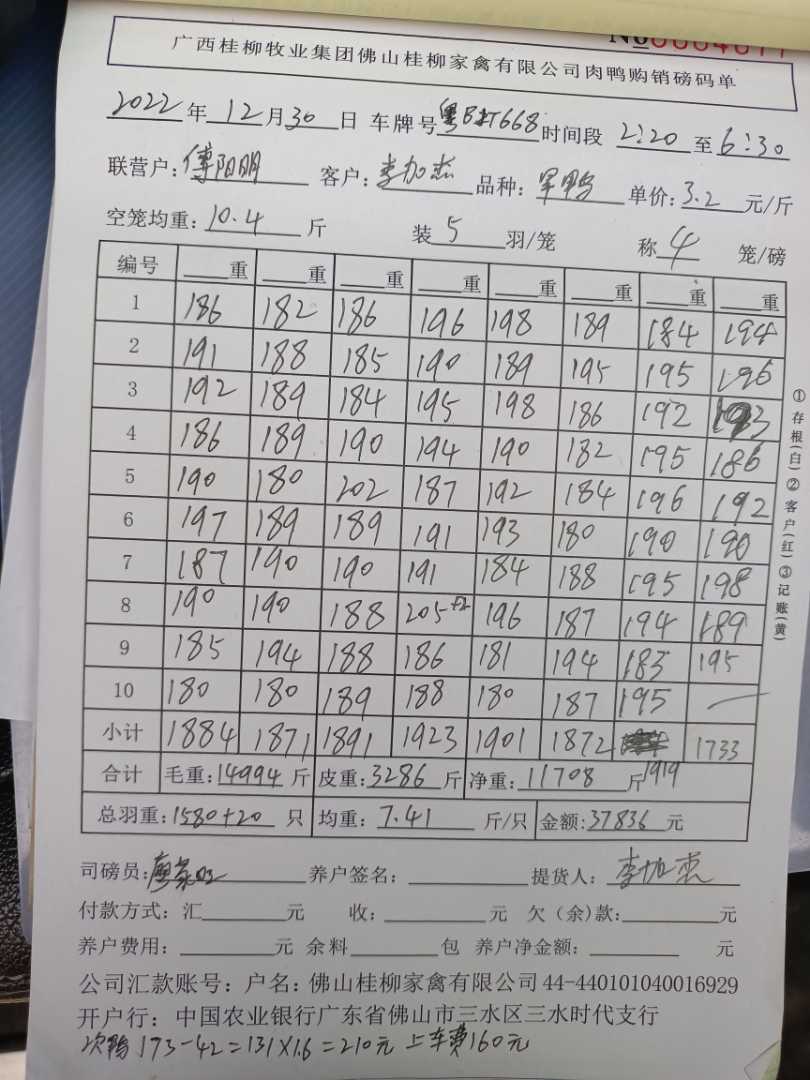 广西桂柳牧业集团佛山桂柳家禽有限公司肉鸭购销磅码单
2022年 12月30日 车牌号 时间段 2:20至6:30
联营户:傅阳明 客户:李加杰 品种: 单价:3.2元/斤
空笼均重:10.4斤 装5羽/笼 称4笼/磅
编号 重 重 重 重 重 重 重 重
1 186 182 186 196 198 189 184 194
2 191 188 185 190 189 195 195 196
3 192 189 184 195 198 186 192 193
4 186 189 190 194 190 182 195 186
5 190 180 202 187 192 184 196 192
6 197 189 189 191 193 180 190 190
7 187 190 190 191 184 188 195 198
8 190 190 188 205+2 196 187 194 189
9 185 194 188 186 181 194 183 195
10 180 180 189 188 180 187 195 —
小计 1884 1871 1891 1923 1901 1872 1733
合计 毛重:14994斤 皮重:3286斤 净重:11708斤 1919
总羽重:1580+20只 均重:7.41斤/只 金额:37836元
司磅员: 养户签名: 提货人:李加杰
付款方式:汇 元 收: 元 欠(余)款: 元
养户费用: 元 余料 包 养户净金额: 元
公司汇款账号:户名:佛山桂柳家禽有限公司44-440101040016929
开户行:中国农业银行广东省佛山市三水区三水时代支行
次鸭 173-42=131×1.6=210元 上车费160元
①存根(白)②客户(红)③记账(黄)